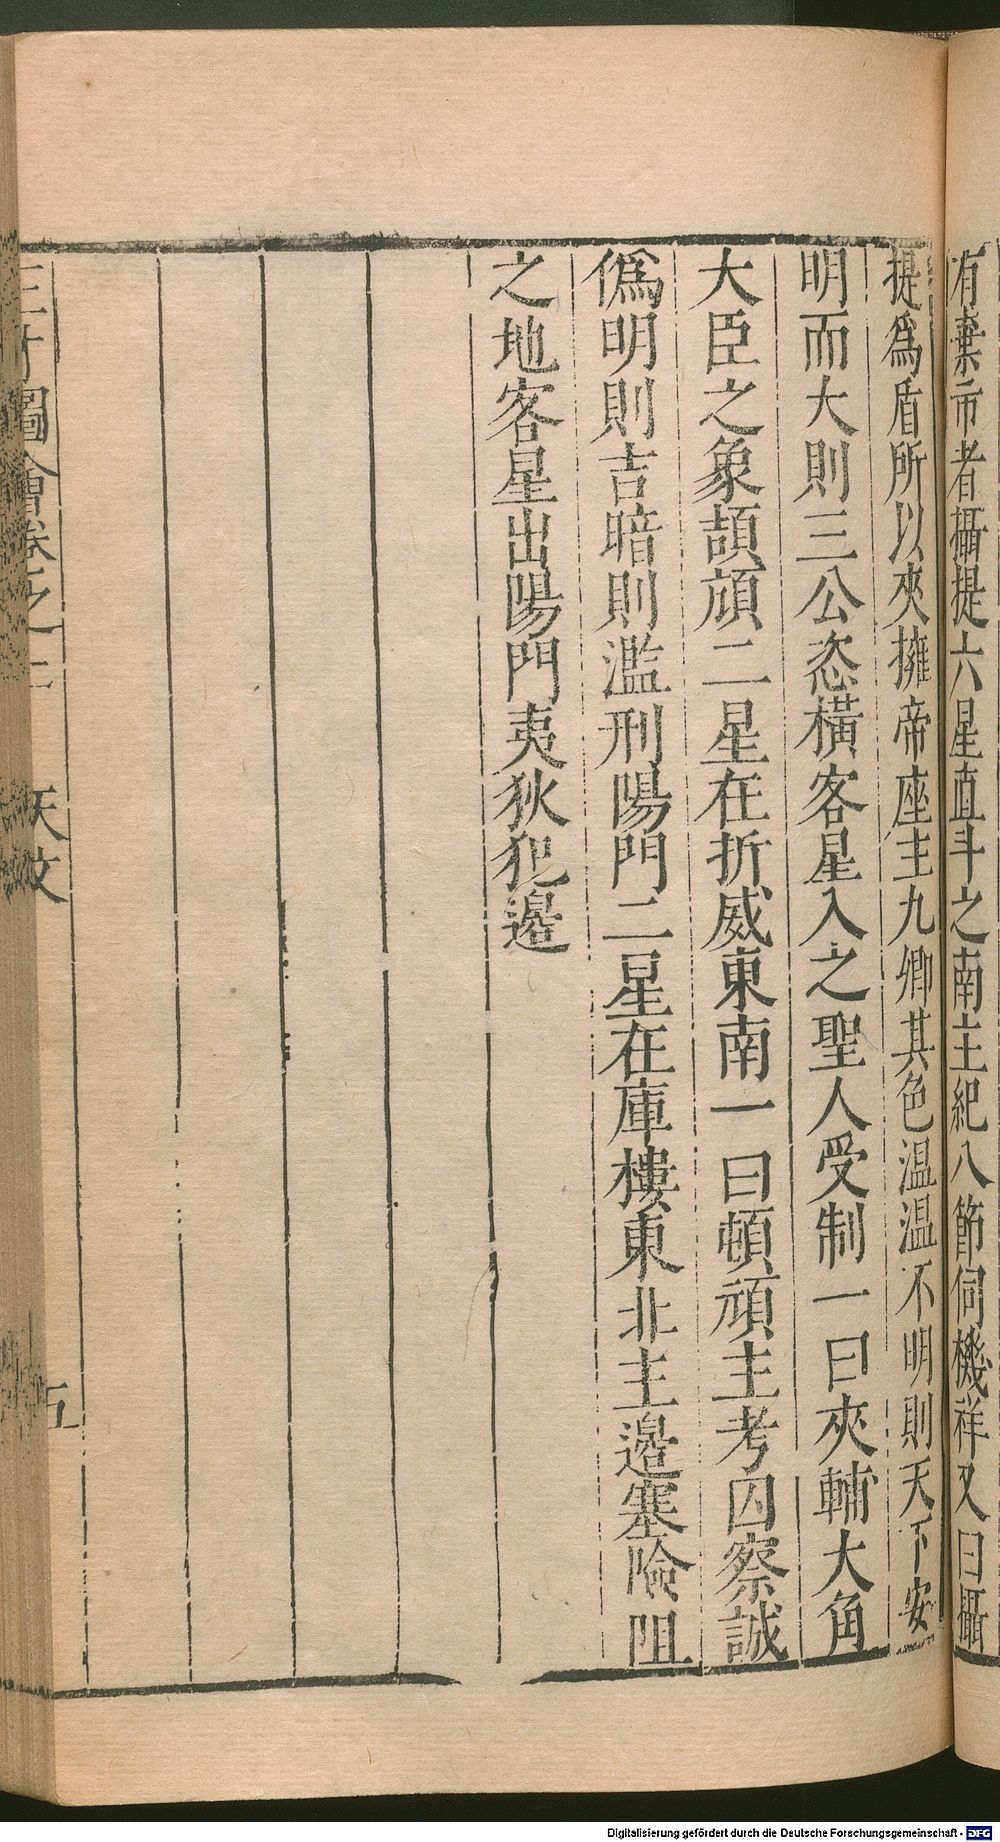 有棄市者攝提六星直斗之南主紀八節伺機祥又曰攝
提爲盾所以夾擁帝座主九卿其色温温不明則天下安
明而大則三公恣橫客星入之聖人受制一曰夾輔大角
大臣之象頡頏二星在折威東南一曰頓頑主考囚察誠
僞明則吉暗則濫刑陽門二星在庫樓東北主邊塞險阻
之地客星出陽門夷狄犯邊
三才圖會卷之二 天文 五
Digitalisierung gefördert durch die Deutsche Forschungsgemeinschaft - DFG